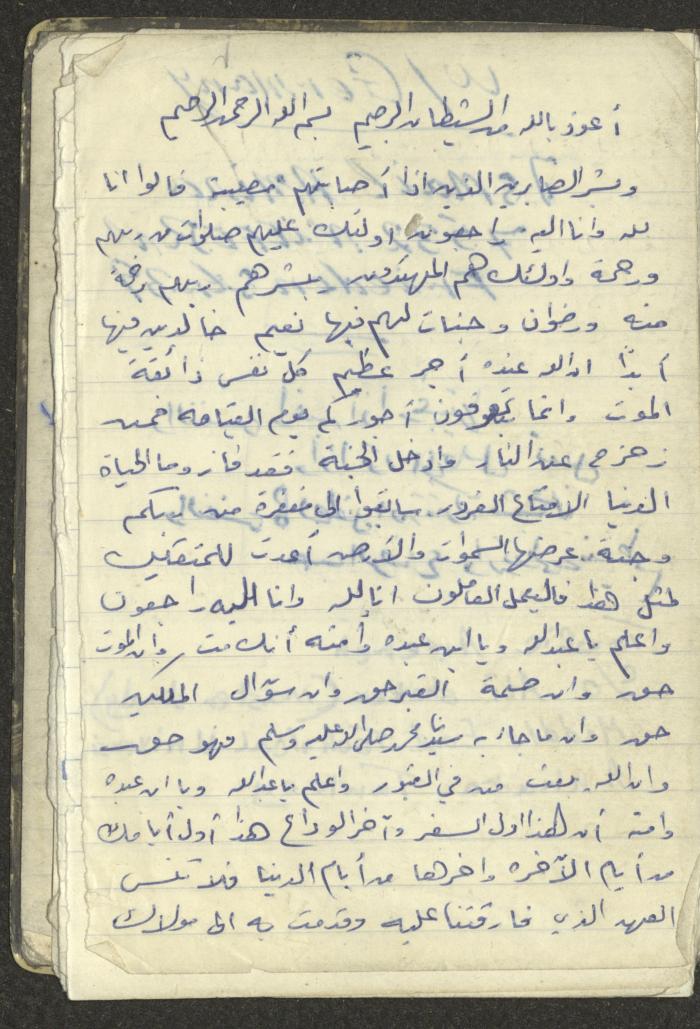 أعوذ بالله من الشيطان الرجيم بسم الله الرحمن الرحيم
وبشر الصابرين الذين اذا أصابتهم مصيبة قالوا انا
لله وانا اليه راجعون اولئك عليهم صلوات من ربهم
ورحمة واولئك هم المهتدون يبشرهم ربهم برحمةً
منه ورضوان وجنات لهم فيها نعيم خالدين فيها
أبدًا ان الله عنده أجر عظيم كل نفس ذائقة
الموت وانما توفون أجوركم يوم القيامه فمن
زحزح عن النار وادخل الجنة فقد فاز وما الحياة
الدنيا الا متاع الغرور سابقوا الى مغفرة من ربكم
وجنة عرضها السموات والارض أعدت للمتقين
لمثل هذا فاليعمل العاملون انا لله وانا اليه راجعون
واعلم يا عبد الله ويا ابن عبده وأمته أنك مت وان الموت
حق وان ضمة القبر حق وان سؤال الملكين
حق وان ما جاء به سيدنا محمد صلى الله عليه وسلم فهو حق
وان الله يبعث من في القبور واعلم يا عبد الله ويا ابن عبده
وامته أن هذا اول السفر وآخر الوداع هذا أول أيامك
من أيام الآخره واخرها من أيام الدنيا فلا تنس
العهد الذي فارقتنا عليه وقدمت به الى مولاك